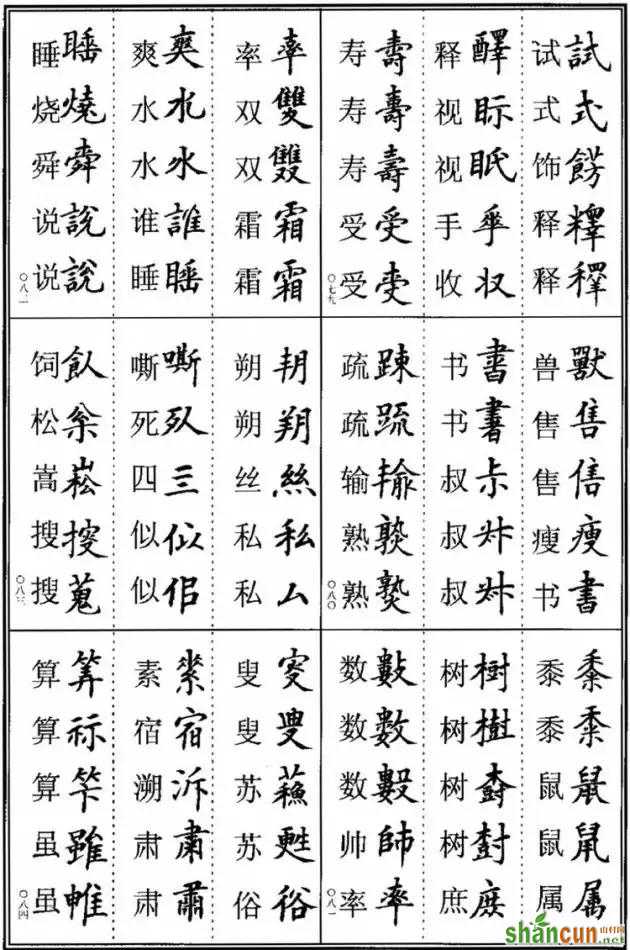 试試
式式
饰餝
释釋
释釋
释醳
视眎
视眂
手
收収
寿壽
寿壽
寿壽
受受
受
〇七九
率率
双雙
双雙
霜霜
霜霜
爽爽
水水
水水
谁誰
睡睡
睡睡
烧燒
舜舜
说説
说說
兽獸
售售
售
瘦瘦
书書
书書
书書
叔
叔
叔
疏踈
疏疏
输输
熟
熟
〇八〇
朔
朔朔
丝絲
私私
私厶
嘶嘶
死
四三
似似
似佀
饲飤
松枀
嵩崧
搜搜
搜蒐
〇八三
黍黍
黍黍
鼠鼠
鼠鼠
属属
树樹
树樹
树
树尌
庶庶
数數
数數
数數
帅帥
率率
〇八一
叟叜
叟叟
苏蘇
苏甦
俗俗
素素
宿宿
溯泝
肃肅
肃肅
算筭
算祘
算笇
虽雖
虽
〇八四
shancun
山村网